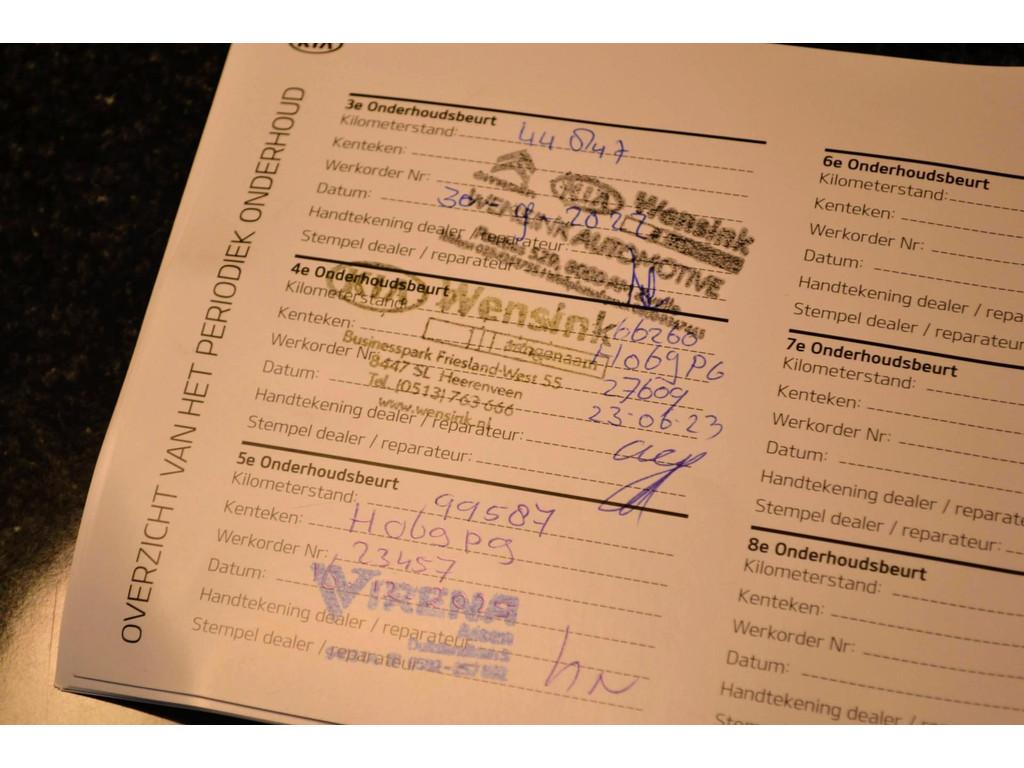 KIA
OVERZICHT VAN HET PERIODIEK ONDERHOUD
3e Onderhoudsbeurt
Kilometerstand:
Kenteken:
Werkorder Nr:
Datum: 30-9-2022
Handtekening dealer / reparateur:
Stempel dealer / reparateur:
KIA Wensink
WENSINK AUTOMOTIVE
4e Onderhoudsbeurt
Kilometerstand: 66268
Kenteken: H069PG
Werkorder Nr: 27609
Datum: 23-06-23
Handtekening dealer / reparateur:
Stempel dealer / reparateur:
KIA Wensink
Businesspark Friesland-West 55
8447 SL Heerenveen
Tel. (0513) 763 666
www.wensink.nl
5e Onderhoudsbeurt
Kilometerstand: 99587
Kenteken: H069PG
Werkorder Nr: 23457
Datum:
Handtekening dealer / reparateur:
Stempel dealer / reparateur:
WIRENA
Assen
6e Onderhoudsbeurt
Kilometerstand:
Kenteken:
Werkorder Nr:
Datum:
Handtekening dealer / repa
Stempel dealer / reparateur
7e Onderhoudsbeurt
Kilometerstand:
Kenteken:
Werkorder Nr:
Datum:
Handtekening dealer / reparate
Stempel dealer / reparateur:
8e Onderhoudsbeurt
Kilometerstand:
Kenteken:
Werkorder Nr:
Datum:
Handtekening dealer / reparateur